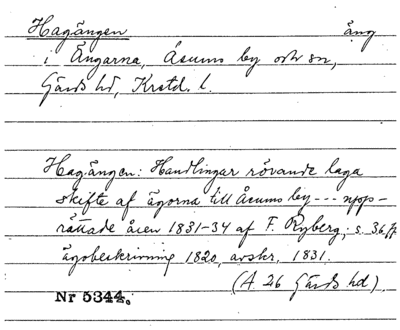 Hagängen äng
i Ängarna, Åsums by och sn,
Gärds hd, Krstd. l.
Hagängen: Handlingar rörande laga
skifte af ägorna till Åsums by --- upp-
rättade åren 1831-34 af F. Ryberg, s. 36, ff
ägobeskrivning 1820, avskr. 1831.
(A. 26 Gärds hd).
Nr 5344.